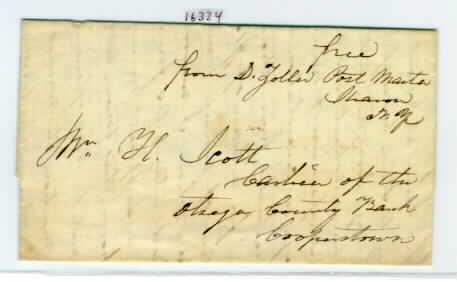 16324
free
from D. Zoller Post Master
Sharon
N.Y
Wm H. Scott
Cashier of the
Otsego County Bank
Cooperstown